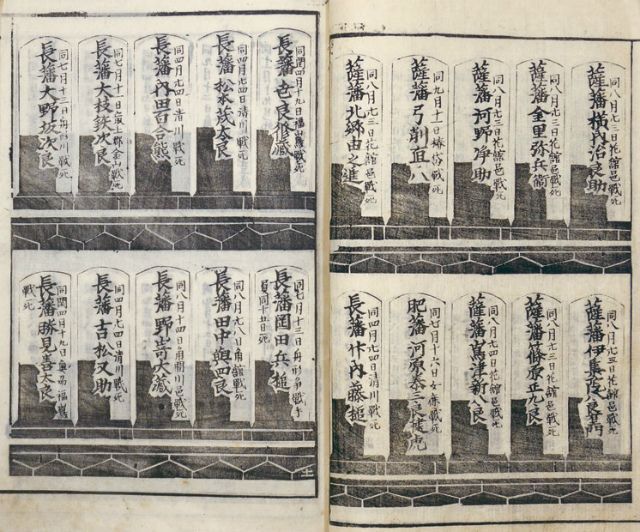 同八月廿三日花館邑戦死
薩藩
同八月廿三日花館邑戦死
薩藩金里弥兵衛
同八月廿三日花館邑戦死
薩藩河野浄助
同九月十一日椿岱戦死
薩藩弓削直八
同八月廿三日花館邑戦死
薩藩北郷由之進
同八月廿三日花館邑戦死
薩藩伊集院八良
同八月廿三日花館邑戦死
薩藩篠原正九良
同八月廿四日花館邑戦死
薩藩嶌津新八良
同七月十六日戦死
肥藩河原泰三良
同四月廿四日清川戦死
長藩竹内藤槌
同閏四月十九日福嶋戦死
長藩世良修蔵
同四月廿四日清川戦死
長藩松本茂太良
同四月廿四日清川戦死
長藩内田百合熊
同七月十一日最上郡金山戦死
長藩大枝鉄次良
同七月十三日舟形戦死
長藩大野坂次良
同七月十三日舟形手
負同十五日死
長藩岡田兵槌
同八月廿八日角館戦死
長藩田中與四良
同八月十四日角間川邑戦死
長藩野嵜大蔵
同四月廿四日清川戦死
長藩吉松又助
同閏四月十九日奥州福嶌
戦死
長藩勝見善太良